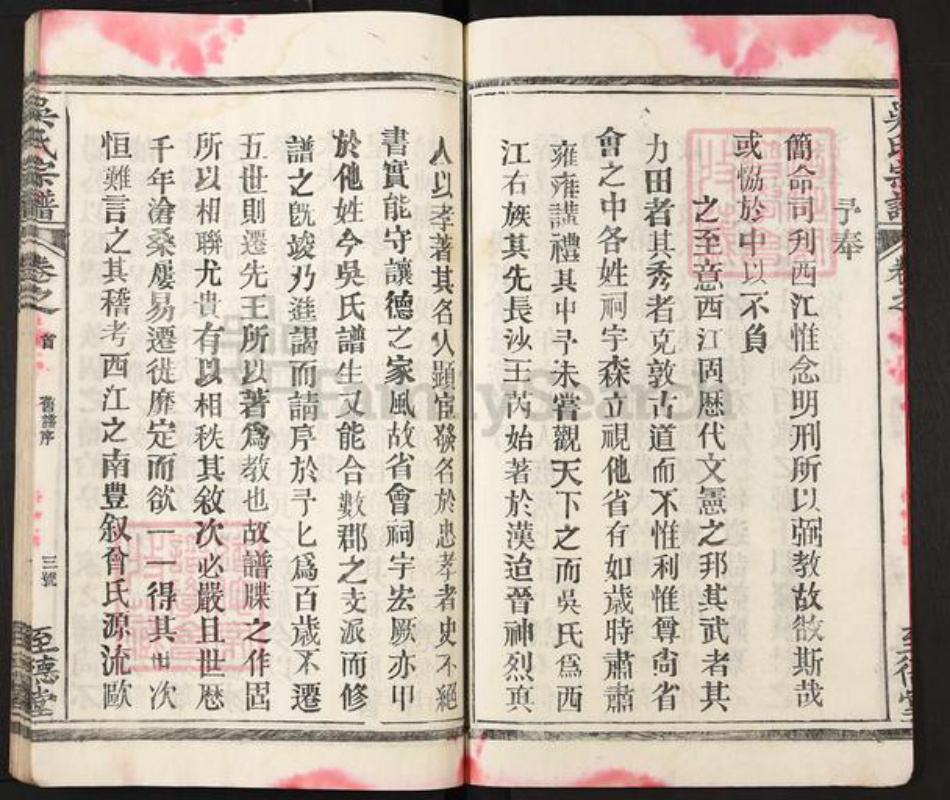 予奉
簡命司刋西江惟念明刑所以弼教故欲斯哉
或恊於中以不負
之至意西江固歷代文憲之邦其武者其
力田者其秀者克敦古道而不惟利惟尊尙省
會之中各姓祠宇森立視他省有如歲時肅肅
雍雍講禮其中予未嘗觀天下之而吳氏爲西
江右族其先長沙王芮始著於漢迨晉神烈真
人以孝著其名人顯宦發名於忠孝者史不絕
書實能守讓德之家風故省會祠宇宏厥亦甲
於他姓今吳氏譜生又能合數郡之支派而修
譜之旣竣乃進謁而請序於予匕爲百歲不遷
五世則遷先王所以著爲教也故譜牒之作固
所以相聯尤貴有以相秩其敘次必嚴且世歷
千年滄桑屢易遷徙靡定而欲一一得其世次
恒難言之其稽考西江之南豊叙曾氏源流歐
吳氏宗譜
卷之
首
舊譜序
三號
至德堂